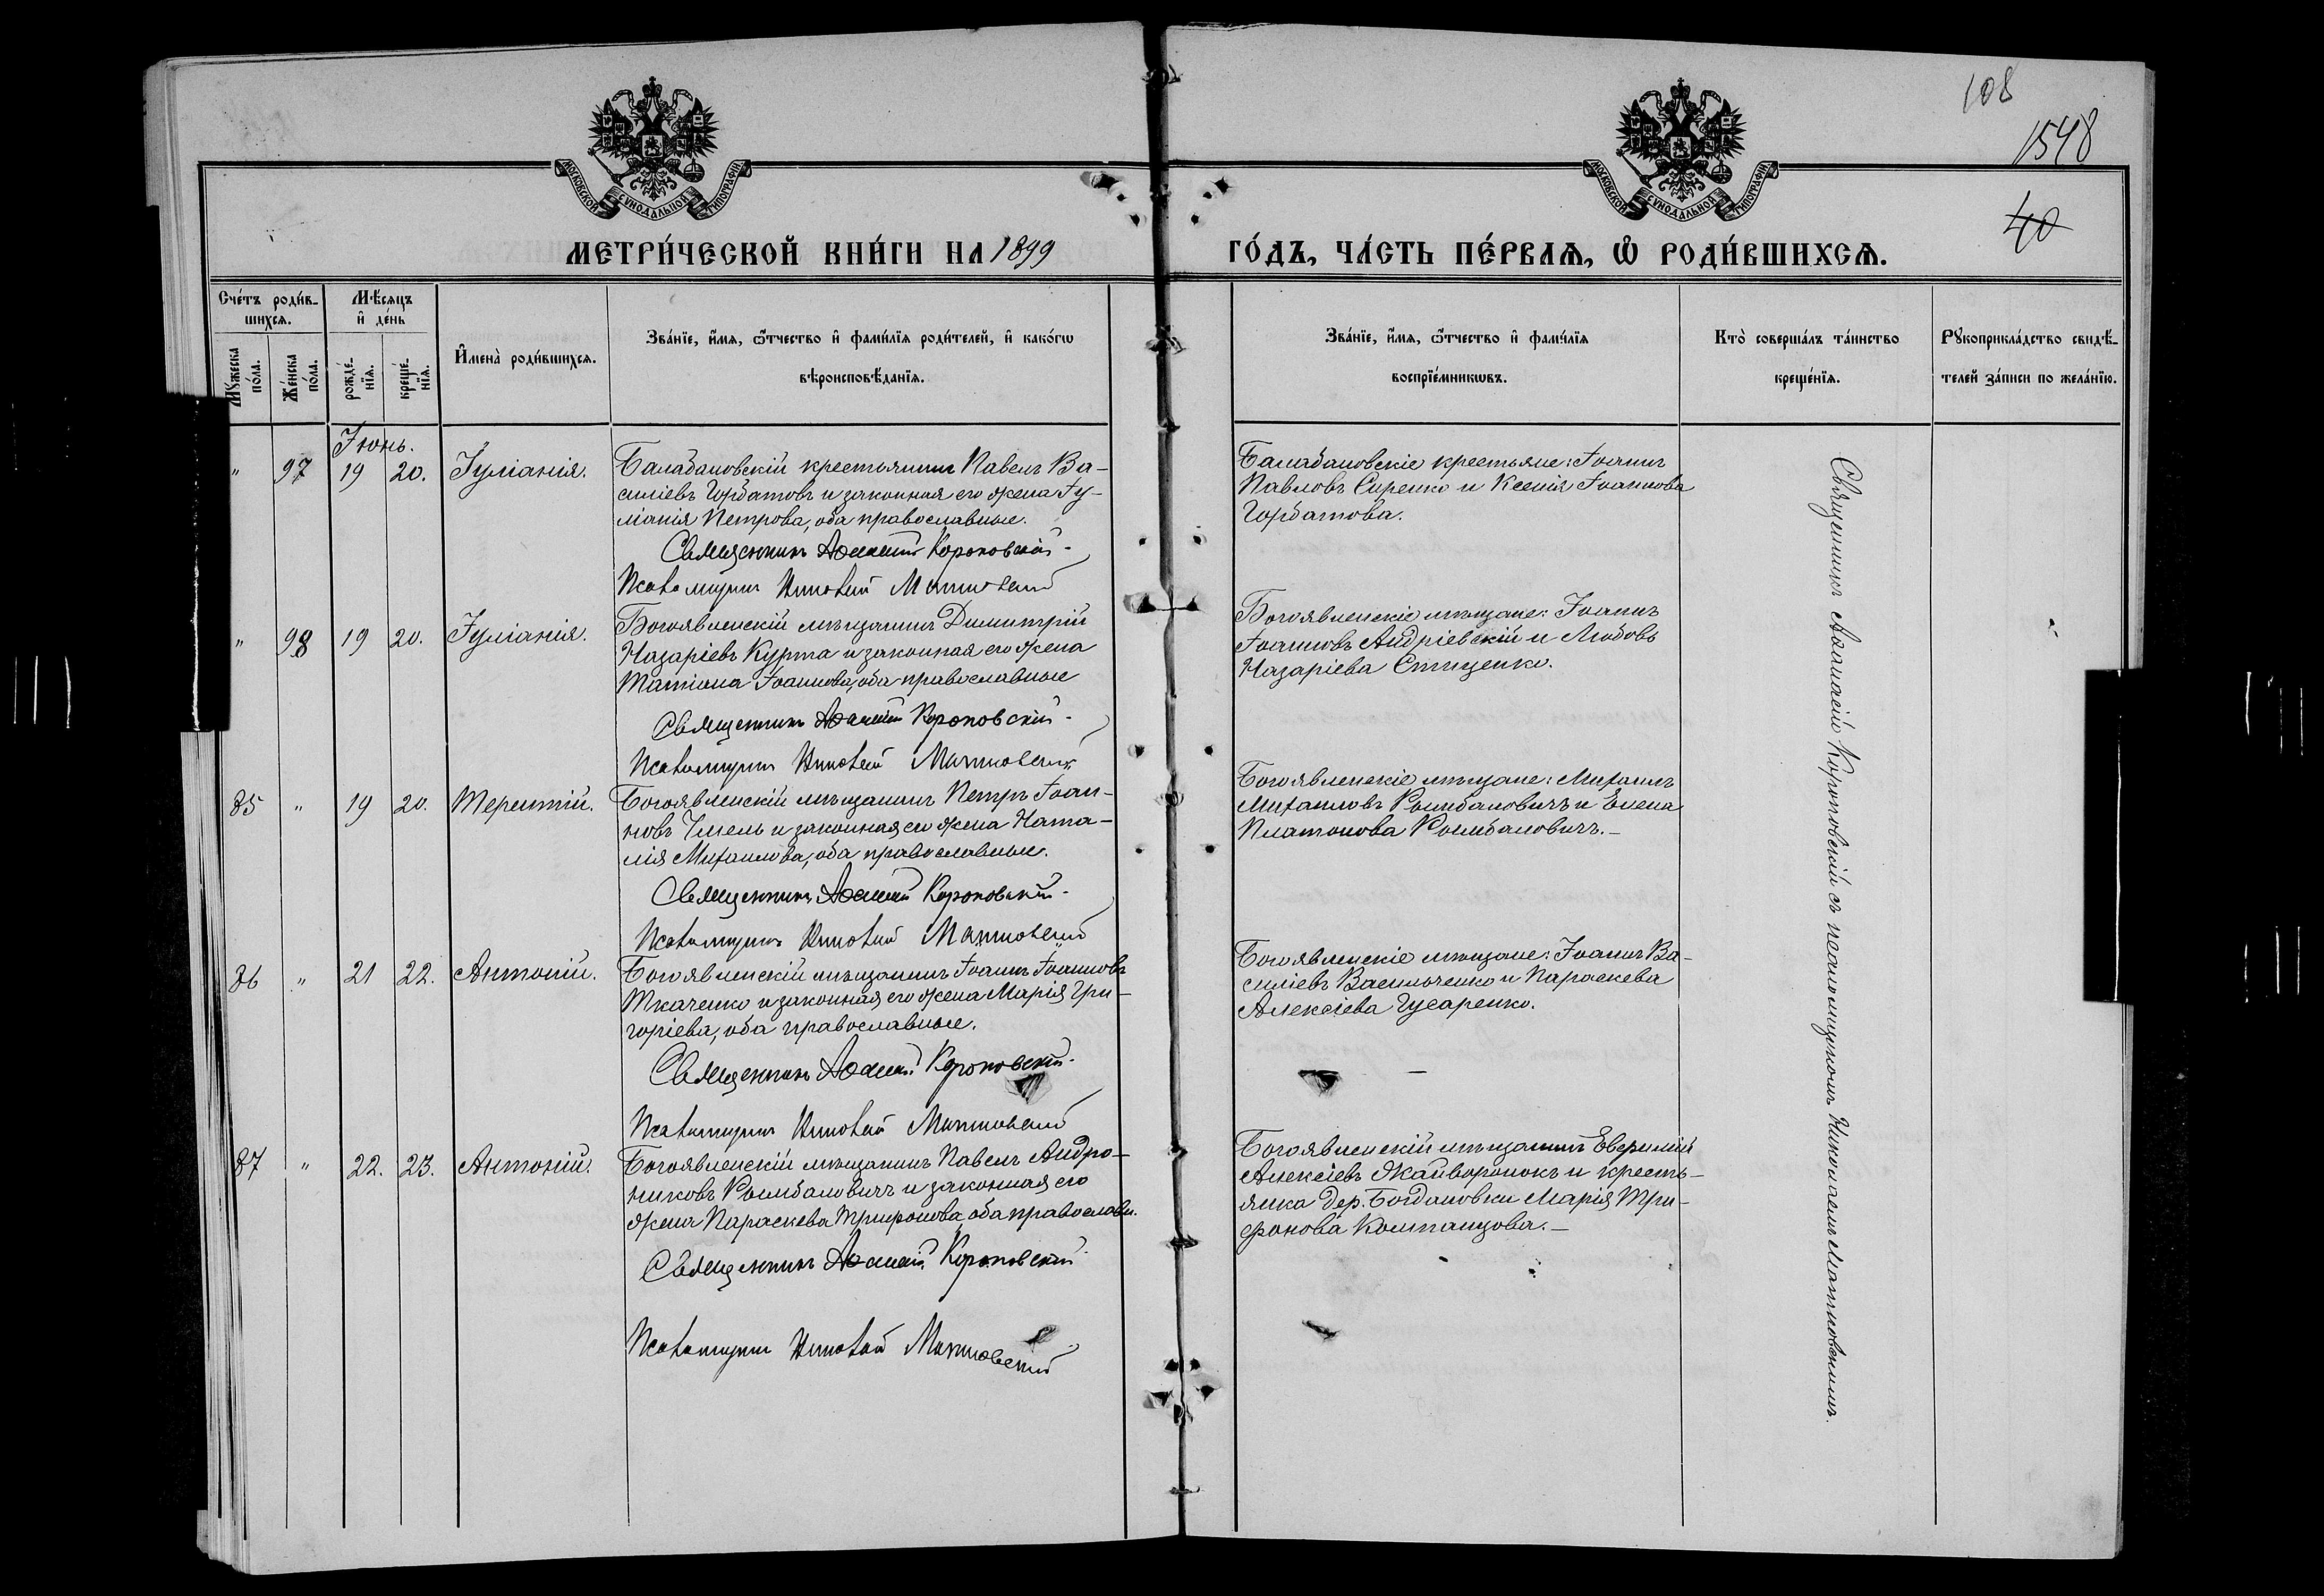 108
1548
40
МОСКОВСКОЙ СѴНОДАЛЬНОЙ ТИПОГРАФІИ
МОСКОВСКОЙ СѴНОДАЛЬНОЙ ТИПОГРАФІИ
МЕТРИ́ЧЕСКОЙ КНИ́ГИ НА 1899
ГО́ДЪ, ЧА́СТЬ ПЕ́РВАѦ, Ѡ҆ РОДИ́ВШИХСѦ.
Сче́тъ роди́в-
шихсѧ.
Мѣ́сѧцъ
и҆ де́нь
Мꙋ́жеска
по́ла.
Же́нска
по́ла.
рожде́-
нїѧ.
креще́-
нїѧ.
И҆мена̀ роди́вшихсѧ.
Зва́нїе, и҆́мѧ, ѻ҆́тчество и҆ фами́лїѧ роди́телей, и҆ како́гѡ
вѣроисповѣ́данїѧ.
Зва́нїе, и҆́мѧ, ѻ҆́тчество и҆ фами́лїѧ
воспрїе́мникѡвъ.
Кто̀ соверша́лъ та́инство
креще́нїѧ.
Рꙋкоприкла́дство свидѣ́-
телей за́писи по жела́нїю.
Іюнь.
" 97 19 20. Іуліанія.
Балабановскій крестьянинъ Павелъ Ва-
силіевъ Горбатовъ и законная его жена Іу-
ліанія Петрова, оба православные.
Священникъ Аѳанасій Короповскій
Псаломщикъ Николай Матковскій
Балабановскіе крестьяне: Іоаннъ
Павловъ Сиренко и Ксенія Іоаннова
Горбатова.
" 98 19 20. Іуліанія.
Богоявленскій мѣщанинъ Димитрій
Назаріевъ Курта и законная его жена
Татіана Іоаннова, оба православные
Священникъ Аѳанасій Короповскій
Псаломщикъ Николай Матковскій
Богоявленскіе мѣщане: Іоаннъ
Іоанновъ Андріевскій и Любовь
Назаріева Стиценко.
85 " 19 20. Терентій.
Богоявленскій мѣщанинъ Петръ Іоан-
новъ Чмель и законная его жена Ната-
лія Михаилова, оба православные.
Священникъ Аѳанасій Короповскій
Псаломщикъ Николай Матковскій
Богоявленскіе мѣщане: Михаилъ
Михаиловъ Рымбаловичъ и Елена
Платонова Рымбаловичъ.-
86 " 21 22. Антоній.
Богоявленскій мѣщанинъ Іоаннъ Іоанновъ
Ткаченко и законная его жена Марія Гри-
горіева, оба православные.
Священникъ Аѳанасій Короповскій
Псаломщикъ Николай Матковскій
Богоявленскіе мѣщане: Іоаннъ Ва-
силіевъ Васильченко и Параскева
Алексіева Гусаренко.
87 " 22. 23. Антоній.
Богоявленскій мѣщанинъ Павелъ Андро-
никовъ Рымбаловичъ и законная его
жена Параскева Трифонова, оба православн.
Священникъ Аѳанасій Короповскій
Псаломщикъ Николай Матковскій
Богоявленскій мѣщанинъ Евѳимій
Алексіевъ Жайворонокъ и кресть-
янка дер. Богдановки Марія Три-
фонова Компанцова.-
Священникъ Аѳанасій Короповскій съ псаломщикомъ Николаемъ Матковскимъ.